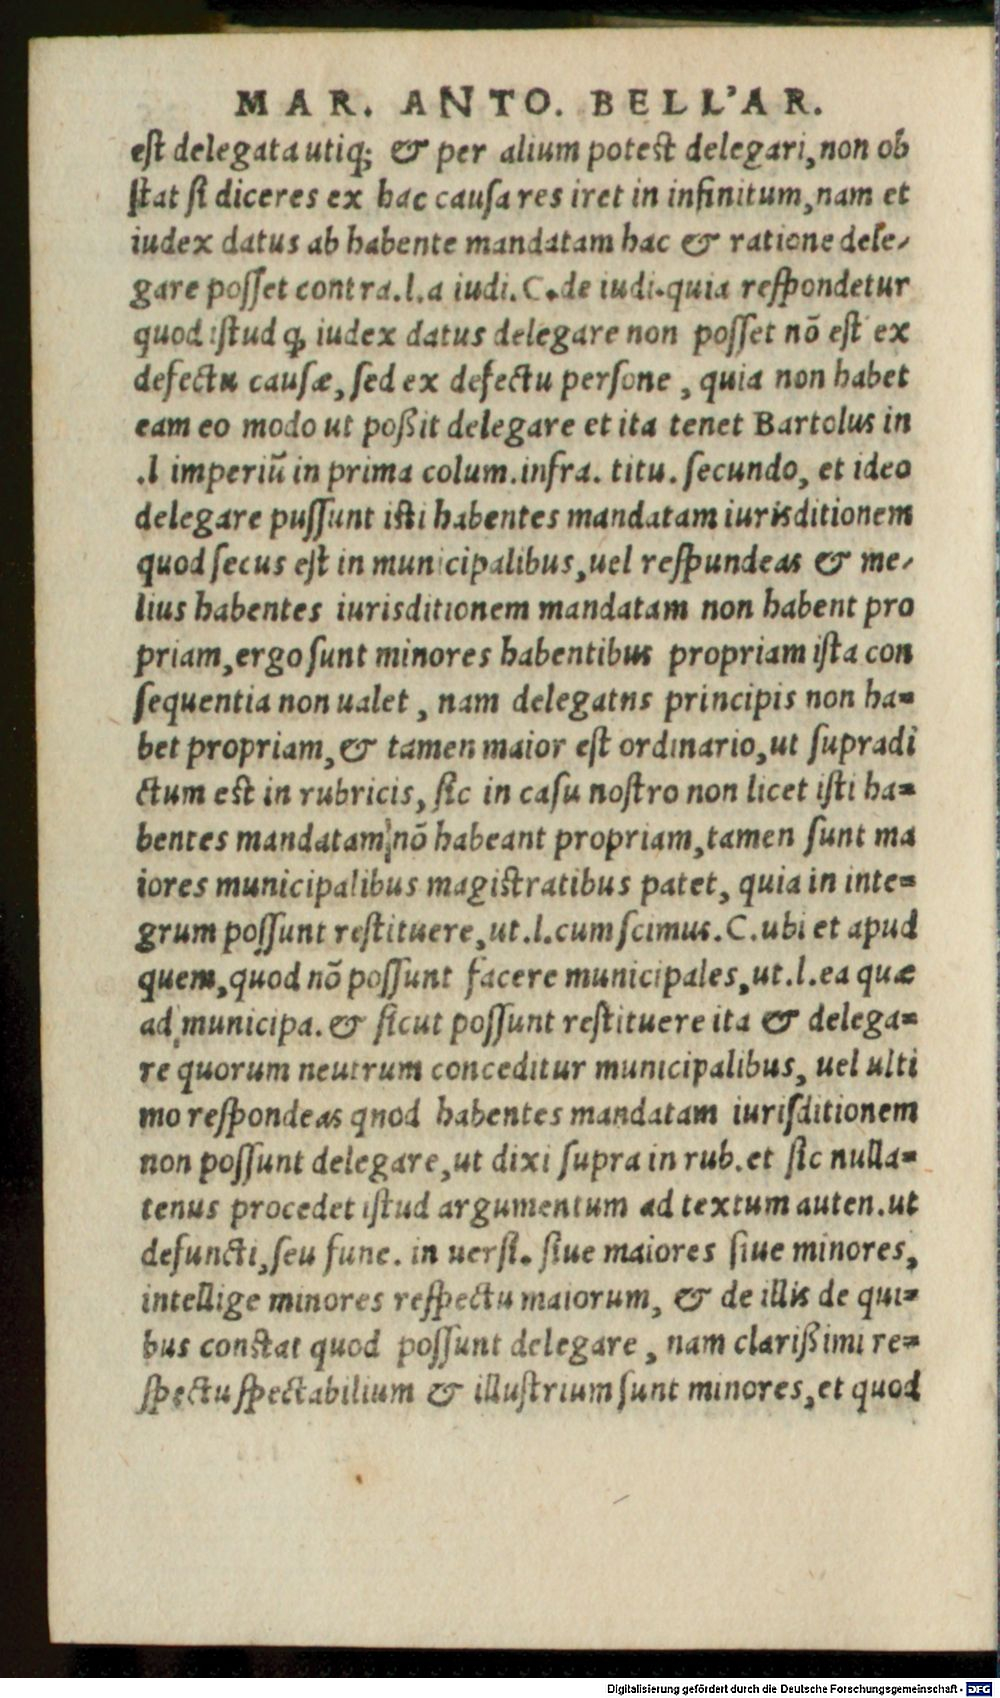 MAR. ANTO. BELL'AR.
est delegata utiq; & per alium potest delegari, non ob
stat si diceres ex hac causa res iret in infinitum, nam et
iudex datus ab habente mandatam hac & ratione dele-
gare posset contra .l. a iudi. C. de iudi. quia respondetur
quod istud q, iudex datus delegare non posset nõ est ex
defectu causæ, sed ex defectu persone, quia non habet
eam eo modo ut poßit delegare et ita tenet Bartolus in
.l imperiũ in prima colum. infra. titu. secundo, et ideo
delegare pussunt isti habentes mandatam iurisditionem
quod secus est in municipalibus, uel respundeas & me-
lius habentes iurisditionem mandatam non habent pro
priam, ergo sunt minores habentibus propriam ista con
sequentia non ualet, nam delegatns principis non ha=
bet propriam, & tamen maior est ordinario, ut supradi
ctum est in rubricis, sic in casu nostro non licet isti ha=
bentes mandatam nõ habeant propriam, tamen sunt ma
iores municipalibus magistratibus patet, quia in inte=
grum possunt restituere, ut .l. cum scimus. C. ubi et apud
quem, quod nõ possunt facere municipales, ut .l. ea quæ
ad municipa. & sicut possunt restituere ita & delega=
re quorum neutrum conceditur municipalibus, uel ulti
mo respondeas qnod habentes mandatam iurisditionem
non possunt delegare, ut dixi supra in rub. et sic nulla=
tenus procedet istud argumentum ad textum auten. ut
defuncti, seu fune. in uersi. siue maiores siue minores,
intellige minores respectu maiorum, & de illis de qui=
bus constat quod possunt delegare, nam clarißimi re=
spectu spectabilium & illustrium sunt minores, et quod
Digitalisierung gefördert durch die Deutsche Forschungsgemeinschaft - DFG